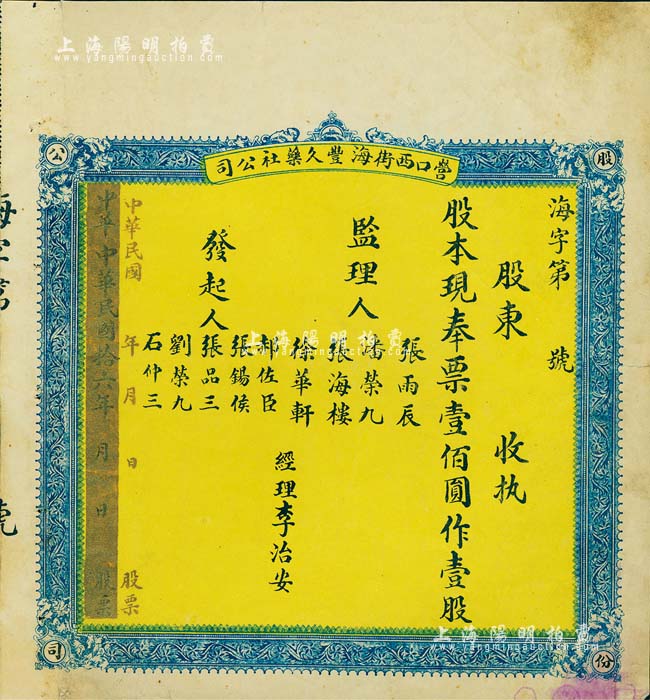 上海陽明拍賣
www.yangmingauction.com
營口西街海豐久藥社公司
股份公司
海字第 號
股東 收执
股本現奉票壹佰圓作壹股
監理人
張雨辰
潘榮九
張海樓
徐華軒
經理李治安
發起人
佐臣
張錫侯
張品三
劉榮九
石仲三
中華民國 年 月 日 股票
中華民國拾六年 月 日 股票
海字第 號
上海陽明拍賣
www.yangmingauction.com
上海陽明拍賣
www.yangmingauction.com